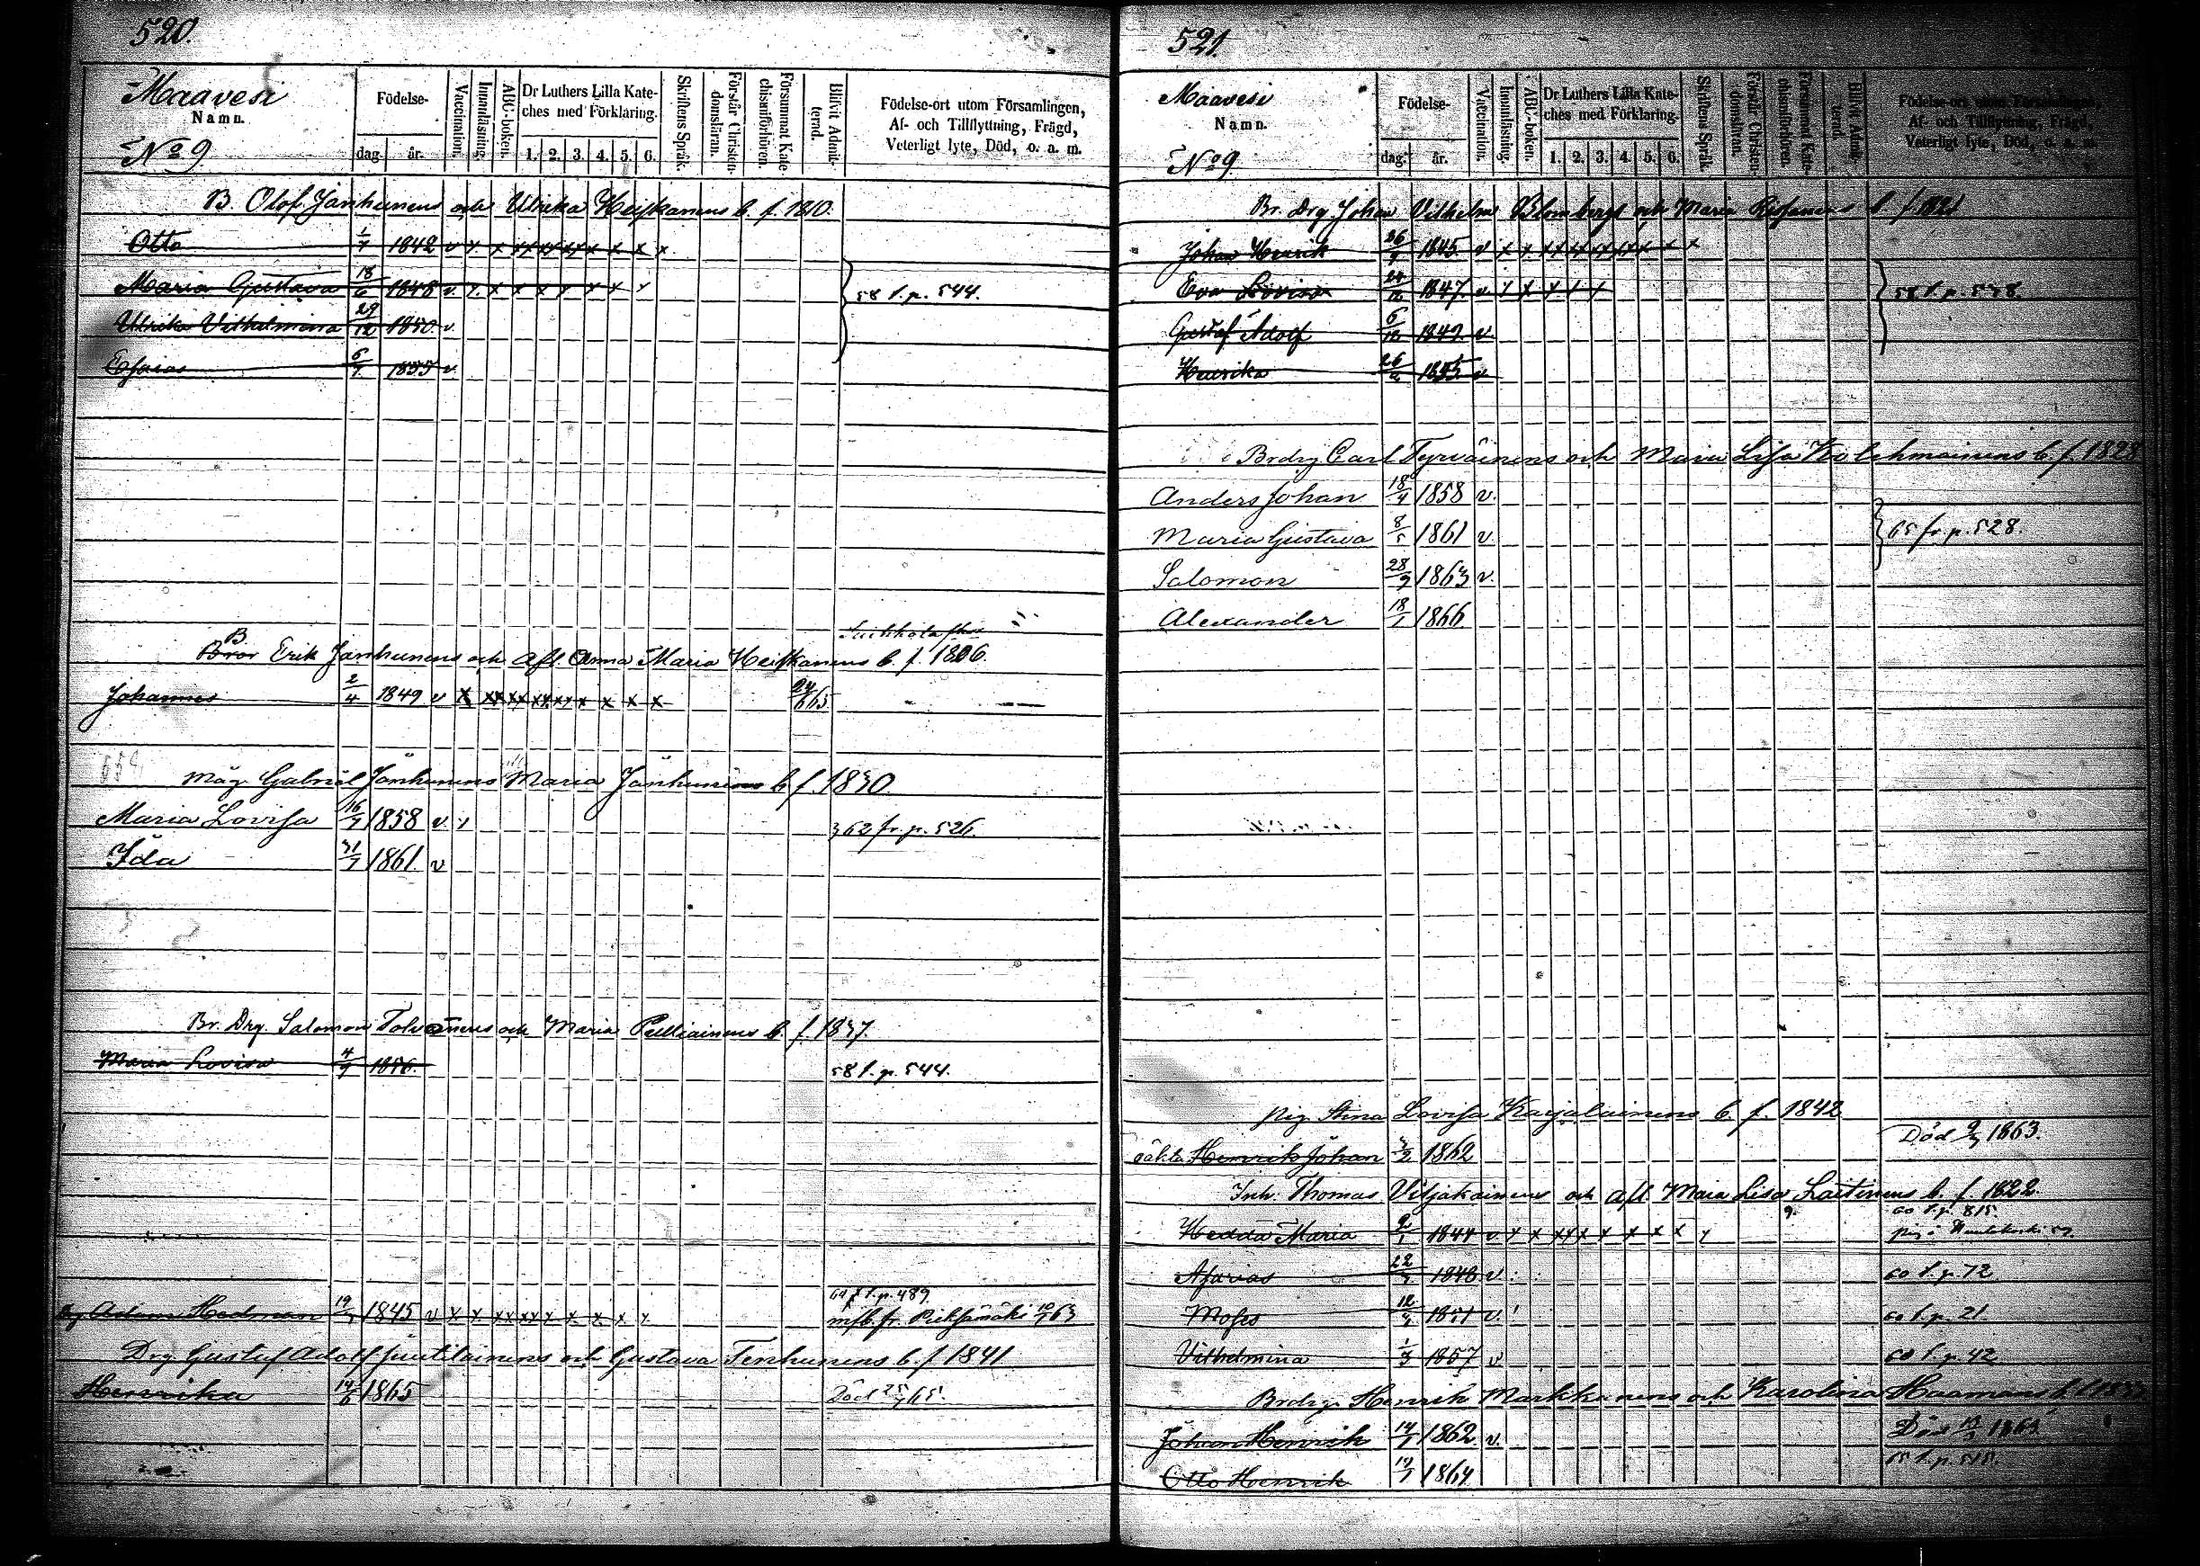 520.
Maavesi
Namn.
No 9.
Födelse-
dag. år.
Vaccination.
Innanläsning.
ABC-boken.
Dr Luthers Lilla Kate-
ches med Förklaring.
1. 2. 3. 4. 5. 6.
Skriftens Språk.
Förstår Christen-
domsläran.
Försummat Kate-
chismiförhören.
Blifvit Admit-
terad.
Födelse-ort utom Församlingen,
Af- och Tillflyttning, Frägd,
Veterligt lyte, Död, o. a. m.
B. Olof Janhunens och Ulrika Heiskanens b. f. 1810.
Otto 1/7 1842 v x x xx xx xx x x x x
Maria Gustava 18/6 1848 v x x x x x x x
58 t. p. 544.
Ulrika Vilhelmina 29/12 1850 v.
Esaias 6/7 1855 v.
B
Bror Erik Janhunens och afl. Anna Maria Heiskanens b. f. 1806.
Johannes 2/4 1849 v x xx xx xx xx x x x x 24/6 65
Måg. Gabriel Janhunens Maria Janhunens b. f. 1830
Maria Lovisa 16/7 1858 v. x
62 fr. p. 526.
Ida 31/7 1861. v
Br. Drg. Salomon Tolvanens och Maria Pulliainens b. f. 1837.
Maria Lovisa 4/9 1856.
58 t. p. 544.
t. p. 489
Adam Hedman 19/ 1845 v x x xx xx x x x x
mfb. fr. Pieksämäki 63
Drg. Gustaf Adolf Puutilainens och Gustava Tenhunens b. f. 1841
Henrika 14/6 1865
Död 25/7 65.
521.
Maavesi
Namn.
No 9.
Födelse-
dag. år.
Vaccination.
Innanläsning.
ABC-boken.
Dr Luthers Lilla Kate-
ches med Förklaring.
1. 2. 3. 4. 5. 6.
Skriftens Språk.
Förstår Christen-
domsläran.
Försummat Kate-
chismiförhören.
Blifvit Admit-
terad.
Födelse-ort utom Församlingen,
Af- och Tillflyttning, Frägd,
Veterligt lyte, Död, o. a. m.
Br. Drg. Johan Vilhelm Blombergs och Maria b. f. 1821
Johan Henrik 26/9 1845 v x x xx xx xx xx x x x
Eva Lovisa 24/12 1847. v x x x x x
58 t. p. 578.
Gustaf Adolf 6/12 1849. v.
Henrika 26/ 1855 v
Brdrg Carl Tyrväinens och Maria Lisa Kolehmainens b. f. 1828
Anders Johan 18/4 1858 v.
Maria Gustava 8/5 1861 v.
65 fr. p. 528.
Salomon 28/9 1863 v.
Alexander 18/1 1866.
Pig. Stina Lovisa Karjalainens b. f. 1842
oäkta Henrik Johan 3/2 1862
Död 9/3 1863.
Inh. Thomas Viljakainens och afl. Maria Lisa Laitinens b. f. 1822
60 t. p. 815
Hedda Maria 2/1 1844 v x x xx x x x x x x
Asarias 22/ 1848 v.
60 t. p. 72
Moses 12/ 1851 v.
60 t. p. 21.
Vilhelmina 1/3 1857 v
60 t. p. 42
Brdrg. Henrik Markkanens och Karolina Haamans b. f.
Johan Henrik 14/1 1862 v.
Död 1863
65 t. p. 515.
Otto Henrik 17/1 1864